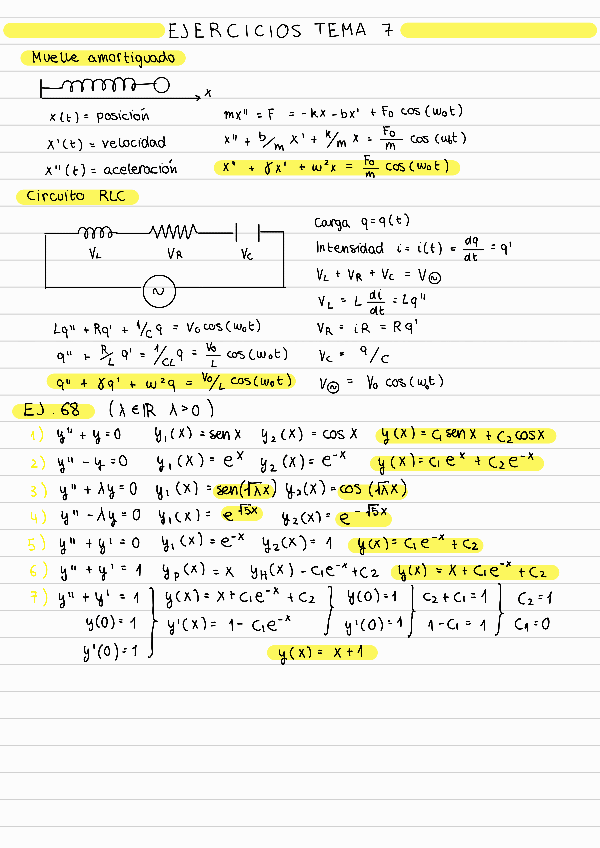 EJERCICIOS TEMA 7
Muelle amortiguado
x
x(t) = posición
mx'' = F = -kx - bx' + F₀ cos(ω₀t)
x'(t) = velocidad
x'' + b/m x' + k/m x = F₀/m cos(ω₀t)
x''(t) = aceleración
x'' + γx' + ω²x = F₀/m cos(ω₀t)
Circuito RLC
V_L V_R V_C
~
Carga q=q(t)
Intensidad i = i(t) = dq/dt = q'
V_L + V_R + V_C = V_~
V_L = L di/dt = Lq''
V_R = iR = Rq'
V_C = q/C
V_~ = V₀ cos(ω₀t)
Lq'' + Rq' + 1/C q = V₀ cos(ω₀t)
q'' + R/L q' = 1/CL q = V₀/L cos(ω₀t)
q'' + γq' + ω²q = V₀/L cos(ω₀t)
EJ.68 (λ∈ℝ λ>0)
1) y'' + y = 0 y₁(x) = sen x y₂(x) = cos x y(x) = c₁ sen x + c₂ cos x
2) y'' - y = 0 y₁(x) = eˣ y₂(x) = e⁻ˣ y(x) = c₁eˣ + c₂e⁻ˣ
3) y'' + λy = 0 y₁(x) = sen(√λx) y₂(x) = cos(√λx)
4) y'' - λy = 0 y₁(x) = e^√5x y₂(x) = e^-√5x
5) y'' + y' = 0 y₁(x) = e⁻ˣ y₂(x) = 1 y(x) = c₁e⁻ˣ + c₂
6) y'' + y' = 1 y_p(x) = x y_H(x) - c₁e⁻ˣ + c₂ y(x) = x + c₁e⁻ˣ + c₂
7) y'' + y' = 1 } y(x) = x + c₁e⁻ˣ + c₂ } y(0) = 1 } c₂ + c₁ = 1 } c₂ = 1
y(0) = 1 y'(x) = 1 - c₁e⁻ˣ y'(0) = 1 1 - c₁ = 1 c₁ = 0
y'(0) = 1 y(x) = x + 1